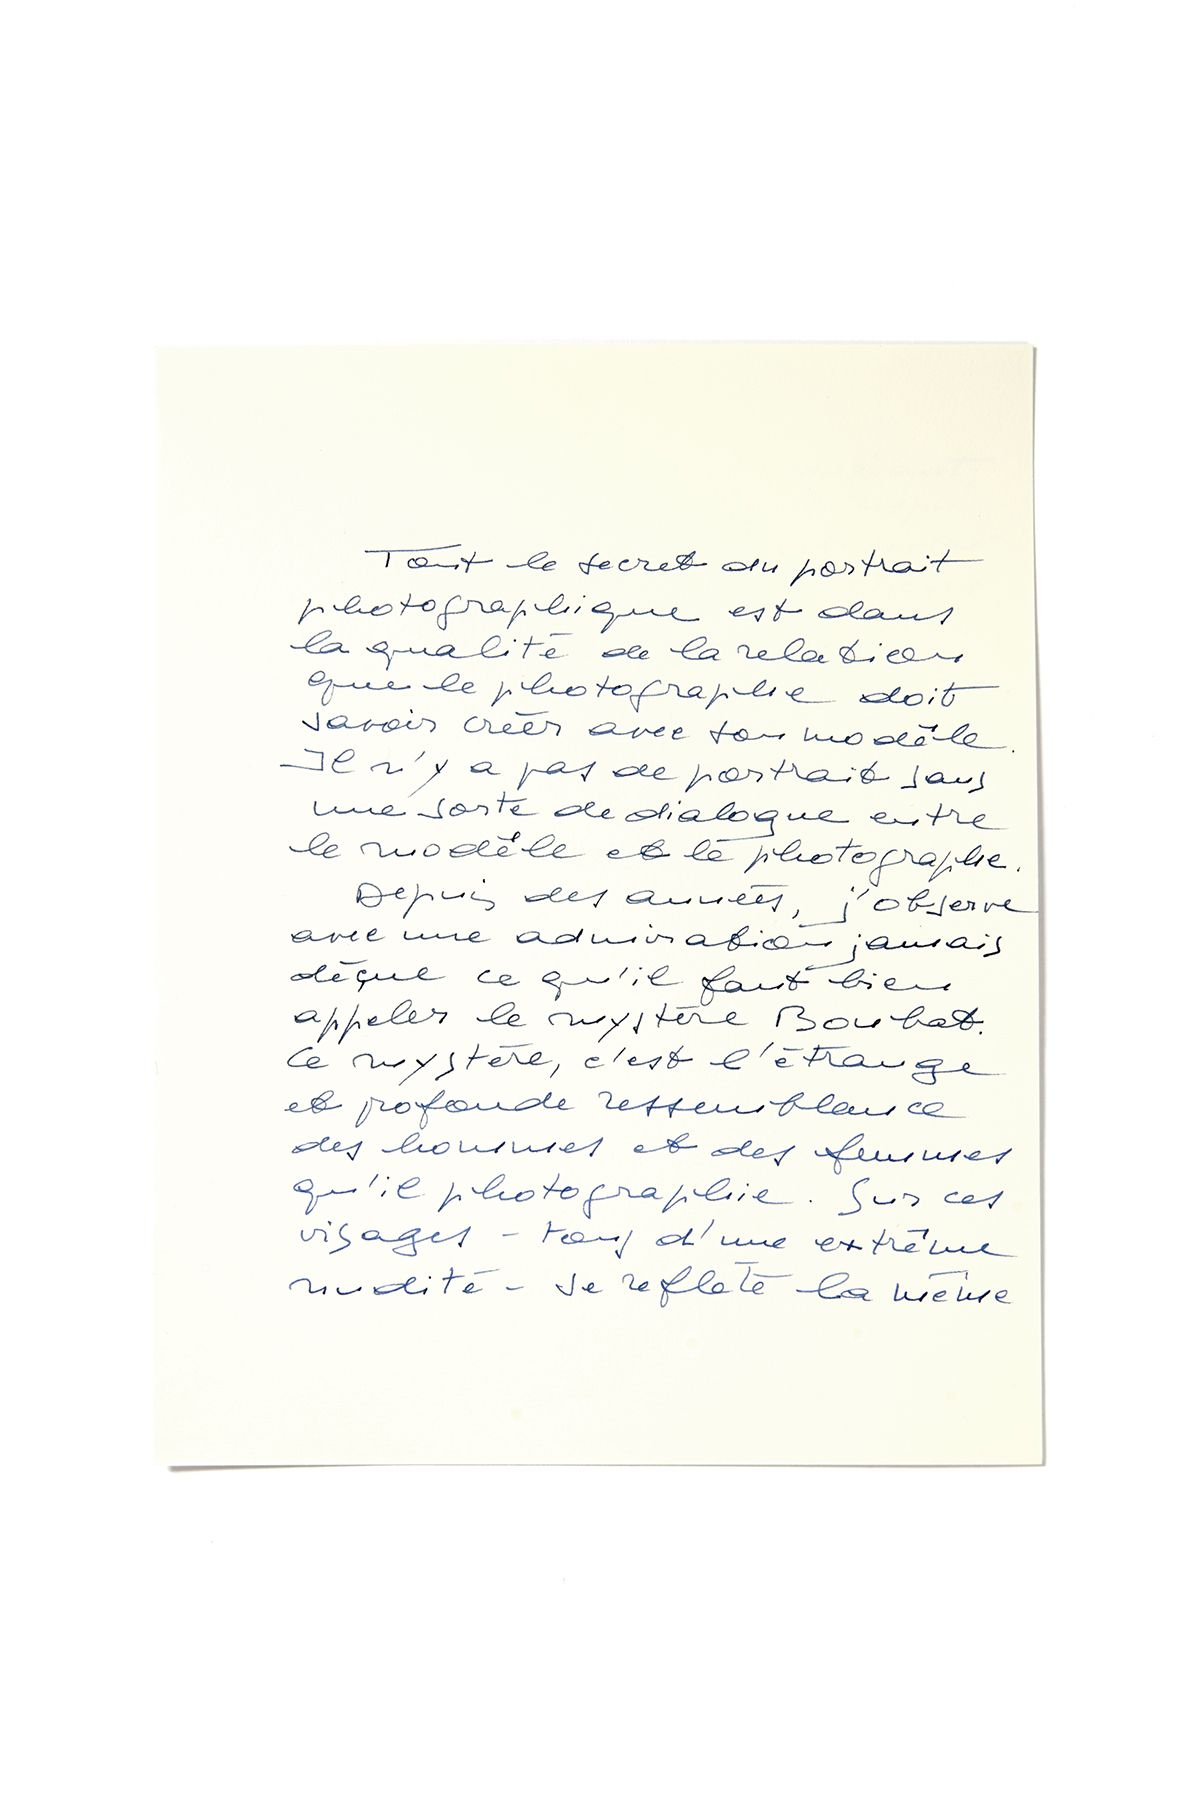 Tout le secret du portrait
photographique est dans
la qualité de la relation
que le photographe doit
savoir créer avec son modèle.
Il n'y a pas de portrait sans
une sorte de dialogue entre
le modèle et le photographe.
Depuis des années, j'observe
avec une admiration jamais
déçue ce qu'il faut bien
appeler le mystère Boubat.
Ce mystère, c'est l'étrange
et profonde ressemblance
des hommes et des femmes
qu'il photographie. Sur ces
visages - tous d'une extrême
nudité - se reflète la même